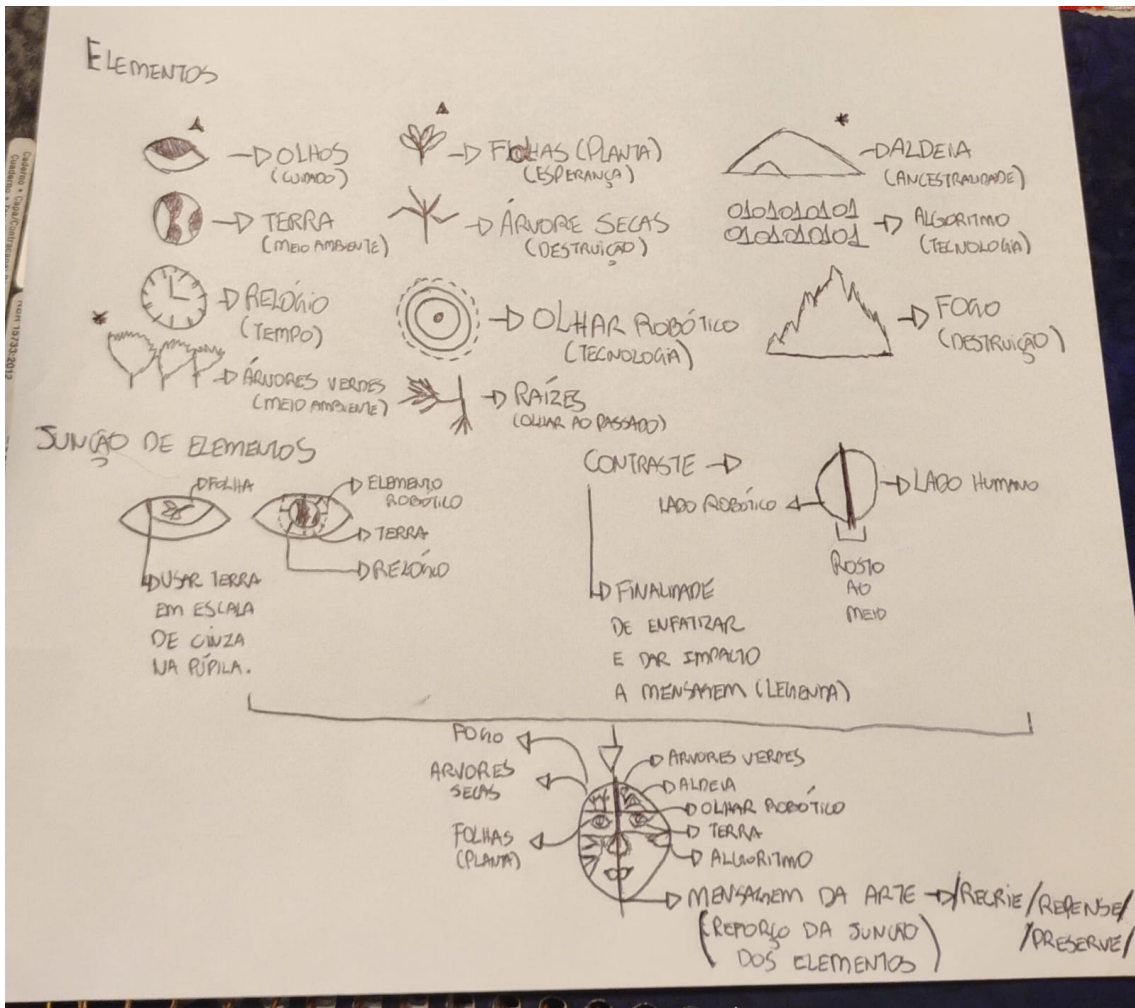 ELEMENTOS
OLHOS
(CUIDADO)
FOLHAS (PLANTA)
(ESPERANÇA)
ALDEIA
(ANCESTRALIDADE)
TERRA
(MEIO AMBIENTE)
ÁRVORE SECAS
(DESTRUIÇÃO)
0101010101
0101010101
ALGORITMO
(TECNOLOGIA)
RELÓGIO
(TEMPO)
OLHAR ROBÓTICO
(TECNOLOGIA)
FOGO
(DESTRUIÇÃO)
ÁRVORES VERDES
(MEIO AMBIENTE)
RAÍZES
(OLHAR AO PASSADO)
JUNÇÃO DE ELEMENTOS
FOLHA
ELEMENTO
ROBÓTICO
TERRA
RELÓGIO
USAR TERRA
EM ESCALA
DE CINZA
NA PÚPILA.
CONTRASTE
LADO ROBÓTICO
LADO HUMANO
ROSTO
AO
MEIO
FINALIDADE
DE ENFATIZAR
E DAR IMPACTO
A MENSAGEM (LEGENDA)
FOGO
ARVORES
SECAS
FOLHAS
(PLANTA)
ARVORES VERDES
ALDEIA
OLHAR ROBÓTICO
TERRA
ALGORITMO
MENSAGEM DA ARTE /RECRIE/REPENSE/
/PRESERVE/
(REFORÇO DA JUNÇÃO
DOS ELEMENTOS)